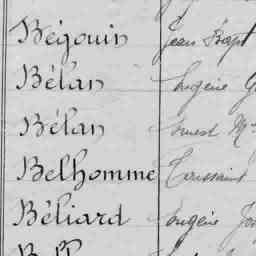 Bégouin Jean Bapt
Bélan Eugène G
Bélan Ernest M
Belhomme Toussaint
Béliard Eugène